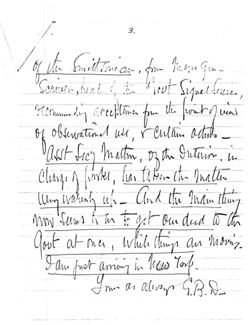 3.
of the Smithsonian, from Major Gen
head of the Govt Signal Service,
recommending acceptance from the point of view
of observational use, & certain others—
Asst Secy Mather, of the Interior, in
charge of parks, has taken the matter
very warmly up— And the main thing
now seems to be to get our deed to the
Govt at once, which things are moving.
I am just arriving in New York.
Yours as always G.B.D.